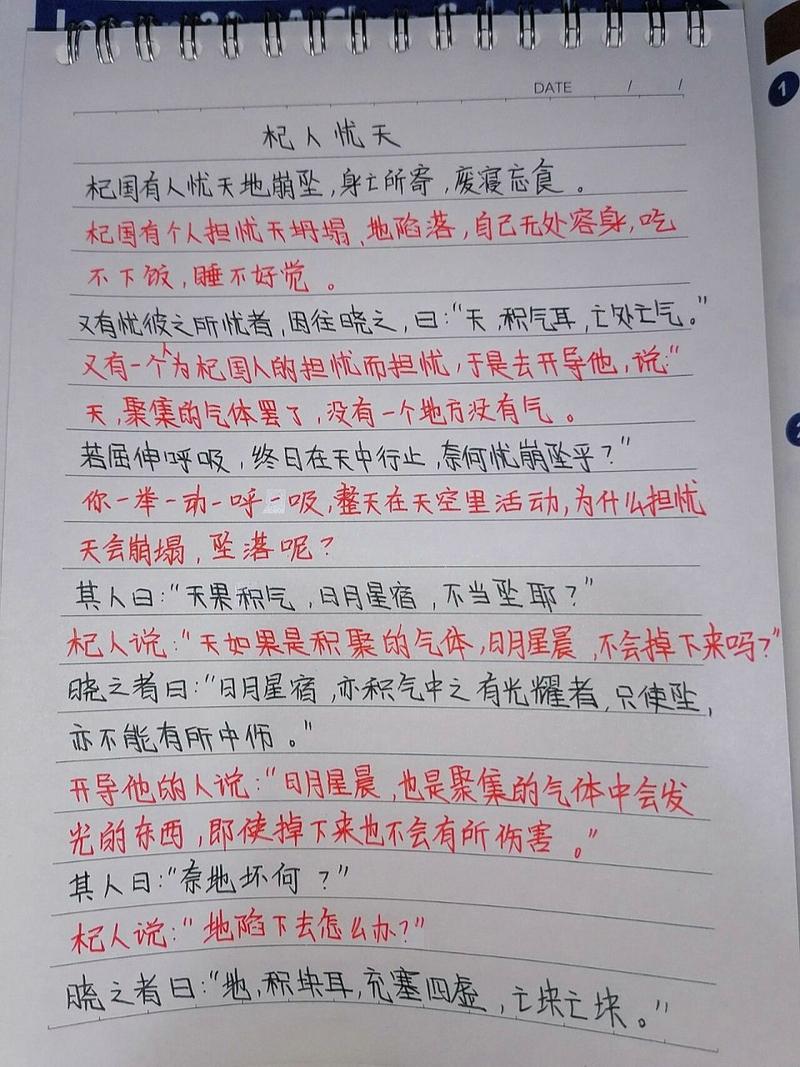 DATE / /
杞人忧天
杞国有人忧天地崩坠，身亡所寄，废寝忘食。
杞国有个人担忧天坍塌、地陷落，自己无处容身，吃
不下饭，睡不好觉。
又有忧彼之所忧者，因往晓之，曰：“天，积气耳，亡处亡气。”
又有一个人为杞国人的担忧而担忧，于是去开导他，说：“
天，聚集的气体罢了，没有一个地方没有气。
若屈伸呼吸，终日在天中行止，奈何忧崩坠乎？”
你一举一动一呼一吸，整天在天空里活动，为什么担忧
天会崩塌，坠落呢？
其人曰：“天果积气，日月星宿，不当坠耶？”
杞人说：“天如果是积聚的气体，日月星晨，不会掉下来吗？”
晓之者曰：“日月星宿，亦积气中之有光耀者，只使坠，
亦不能有所中伤。”
开导他的人说：“日月星晨，也是聚集的气体中会发
光的东西，即使掉下来也不会有所伤害。”
其人曰：“奈地坏何？”
杞人说：“地陷下去怎么办？”
晓之者曰：“地，积块耳，充塞四虚，亡块亡块。”
1